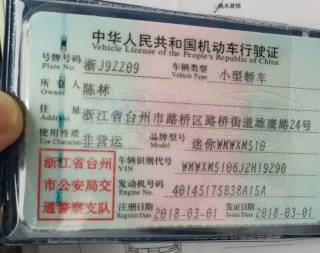 中华人民共和国机动车行驶证
Vehicle License of the People's Republic of China
号牌号码 浙J92Z09 车辆类型 小型轿车
Plate No. Vehicle Type
所有人 陈林
Owner
住址 浙江省台州市路桥区路桥街道雄鹰路24号
Address
使用性质 非营运 品牌型号 迷你WMWXM510
Use Character Model
浙江省台州市公安局交通警察支队
车辆识别代号 WMWXM5106J2H19290
VIN
发动机号码 40145175B38A15A
Engine No.
注册日期 2018-03-01 发证日期 2018-03-01
Register Date Issue Date